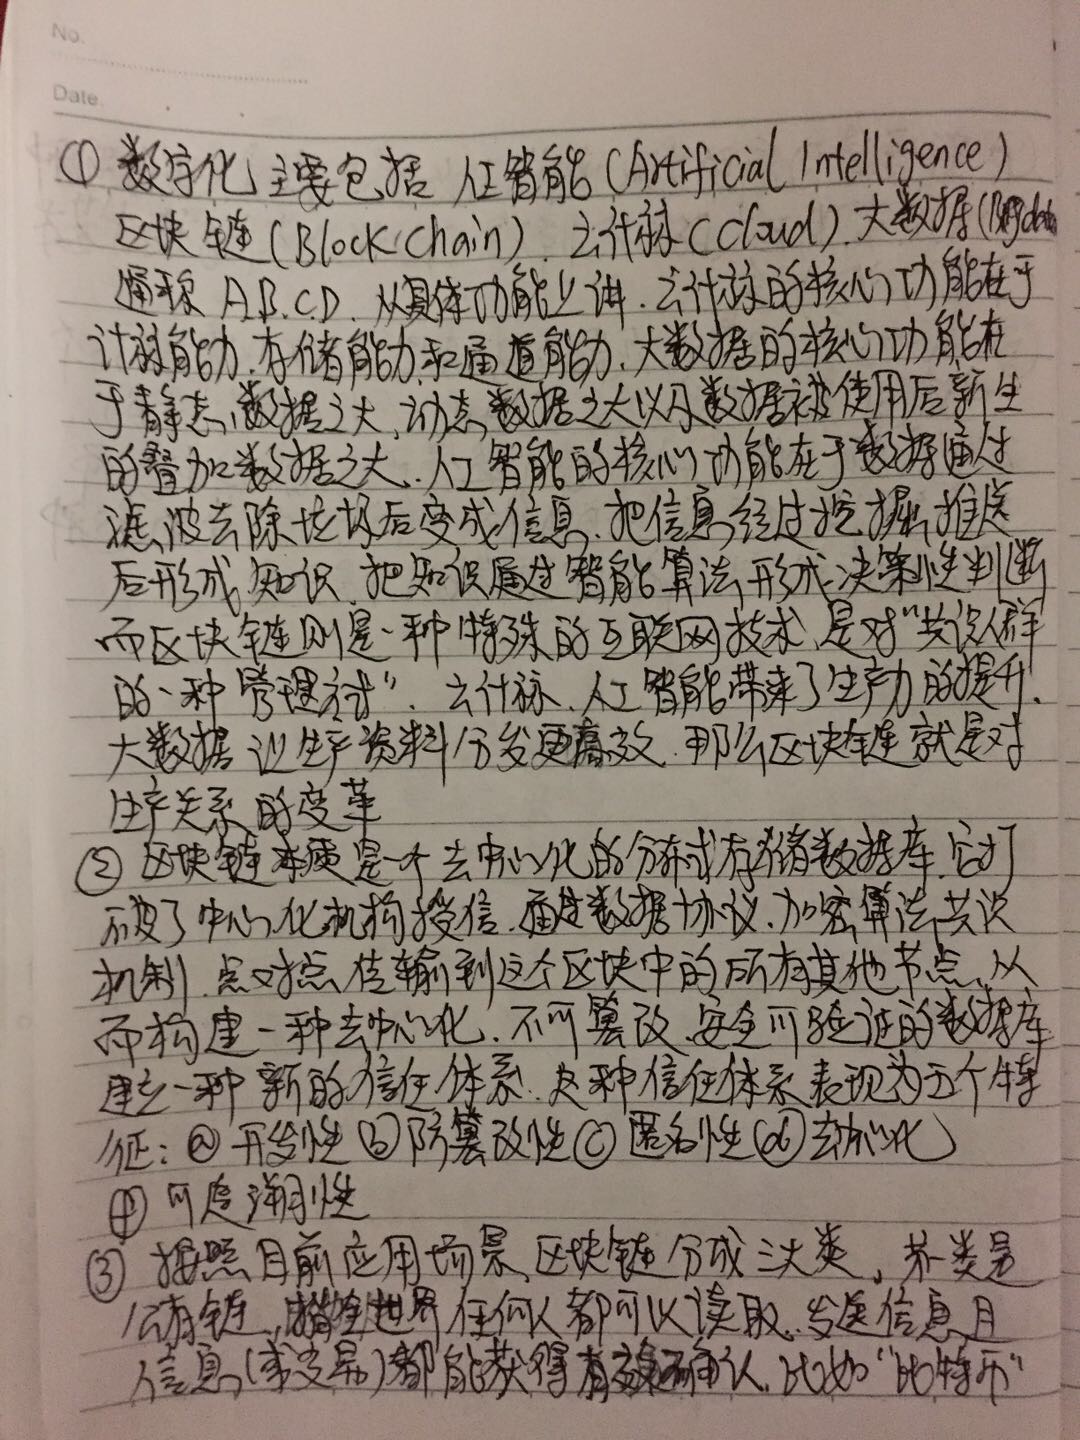 No.
Date.
① 数字化主要包括 人工智能(Artificial Intelligence)
区块链(BlockChain)、云计祘(Cloud)、大数据(Bigdata
通称 A.B.C.D. 从具体功能上讲.云计祘的核心功能在于
计祘能力.存储能力和通道能力、大数据的核心功能在
于静态数据之大、动态数据之大以及数据被使用后新生
的叠加数据之大、人工智能的核心功能在于数据通过
滤波去除垃圾后变成信息、把信息经过挖掘推送
后形成知识、把知识通过智能算法形成决策性判断
而区块链则是一种特殊的互联网技术、是对"共识人群
的一种管理"、云计祘、人工智能带来了生产力的提升、
大数据让生产资料分发更高效、那么区块链就是对
生产关系的变革
② 区块链本质是一个去中心化的分布式存储数据库、它打
破了中心化机构授信、通过数据协议、加密算法、共识
机制、点对点传输到这个区块中的所有其他节点、从
而构建一种去中心化、不可篡改、安全可验证的数据库
建立一种新的信任体系、这种信任体系表现为五个特
征：ⓐ开发性 ⓑ防篡改性 ⓒ匿名性 ⓓ去中心化
可追溯性
③ 按照目前应用场景、区块链分成三大类，第一类是
公有链、指全世界任何人都可以读取、发送信息且
信息(或交易)都能获得有效确认、比如"比特币"